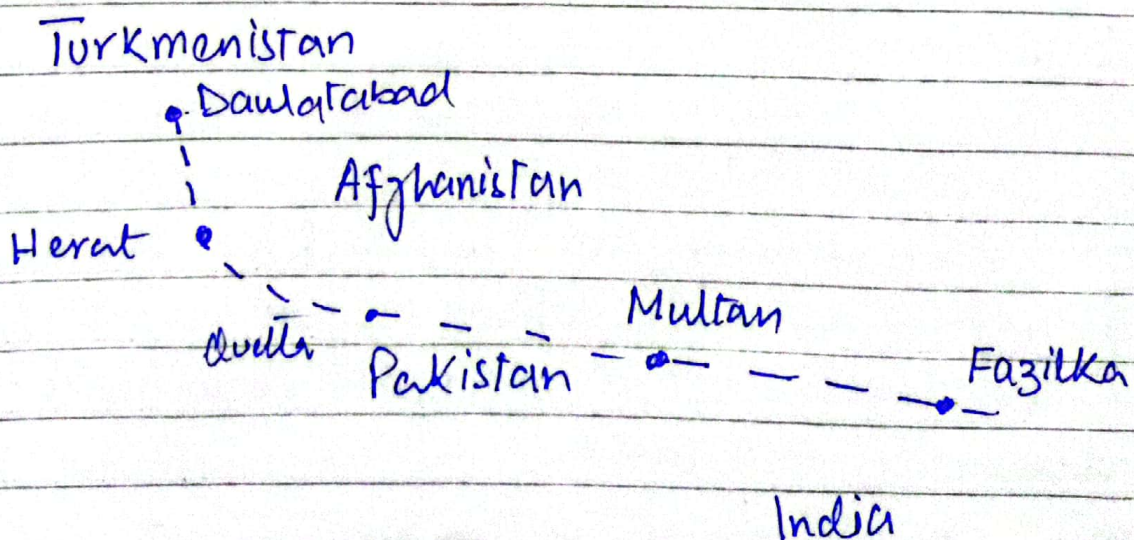 Turkmenistan
Daulatabad
Afghanistan
Herat
Multan
Quetta
Pakistan
Fazilka
India